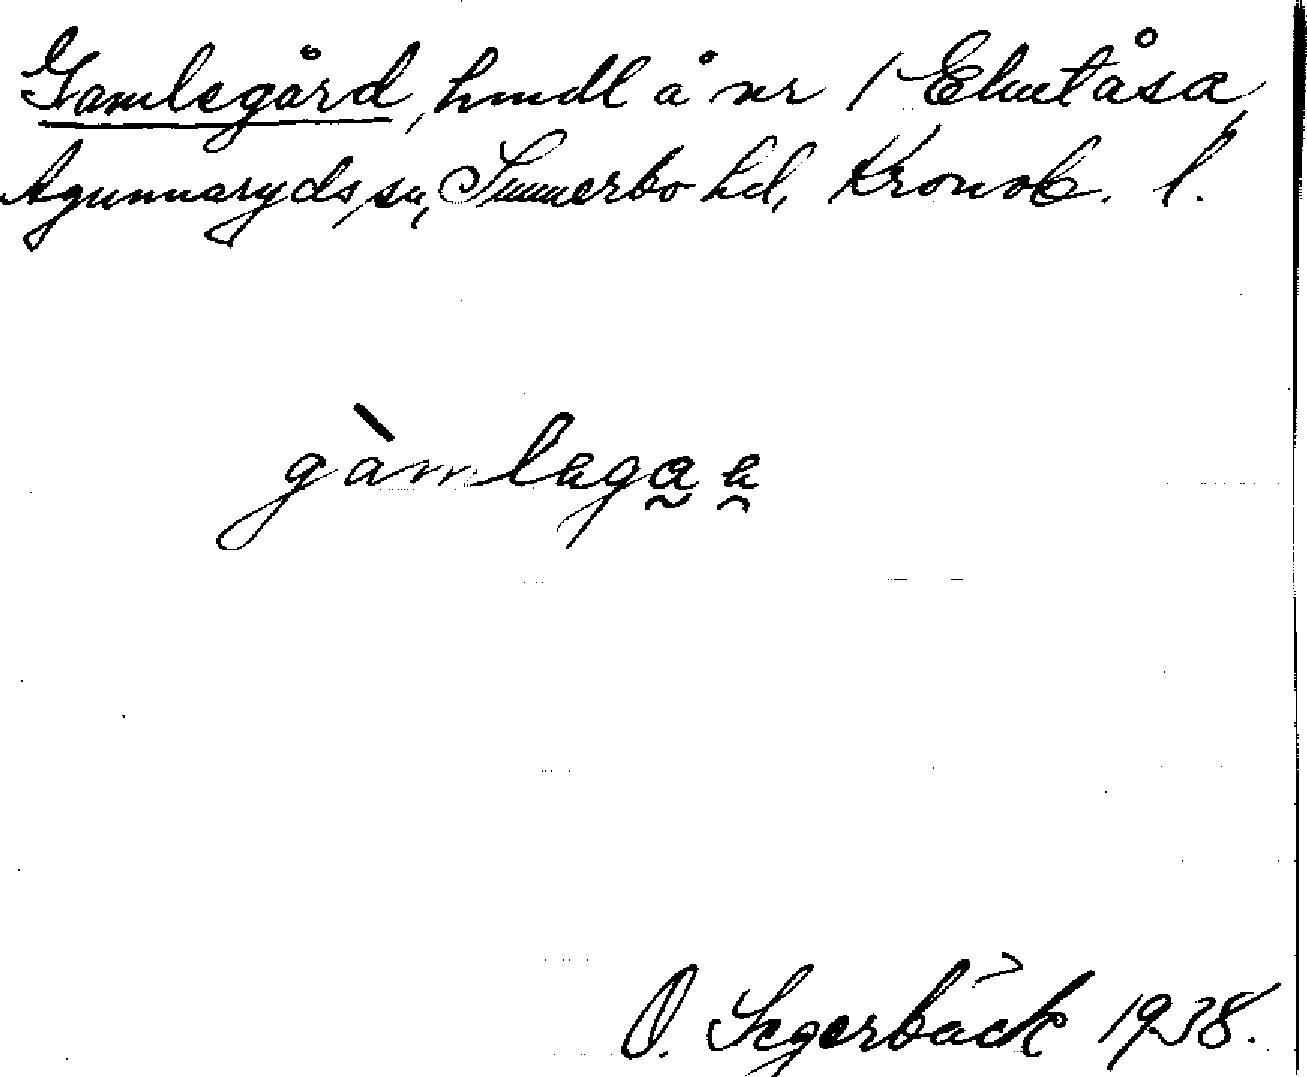 Gamlegård, hmdl å nr 1 Eketåsa,
Agunnaryds sn, Sunnerbo hd, Kronob. l.
gàmlaga̰a̯
O. Segerbäck 1938.